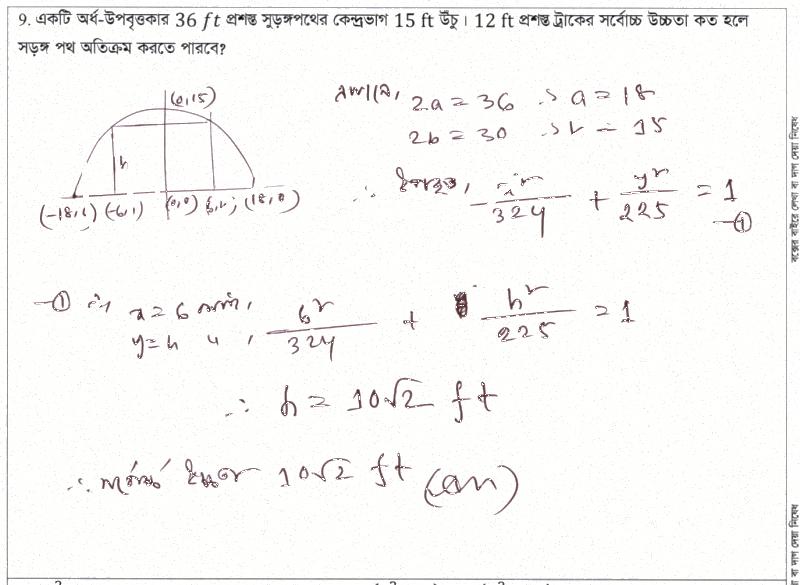 9. একটি অর্ধ-উপবৃত্তকার 36 ft প্রশস্ত সুড়ঙ্গপথের কেন্দ্রভাগ 15 ft উঁচু। 12 ft প্রশস্ত ট্রাকের সর্বোচ্চ উচ্চতা কত হলে
সড়ঙ্গ পথ অতিক্রম করতে পারবে?
(0,15)
h
(0,0)
(18,0)
2a = 36 ∴ a = 18
2b = 30 ∴ b = 15
∴ উপবৃত্ত, x²/324 + y²/225 = 1 —①
—① এ x = 6 , 6²/324 + h²/225 = 1
y = h
∴ h = 10√2 ft
∴ সর্বোচ্চ উচ্চতা 10√2 ft (Ans)
বক্সের বাইরে লেখা বা দাগ দেয়া নিষেধ